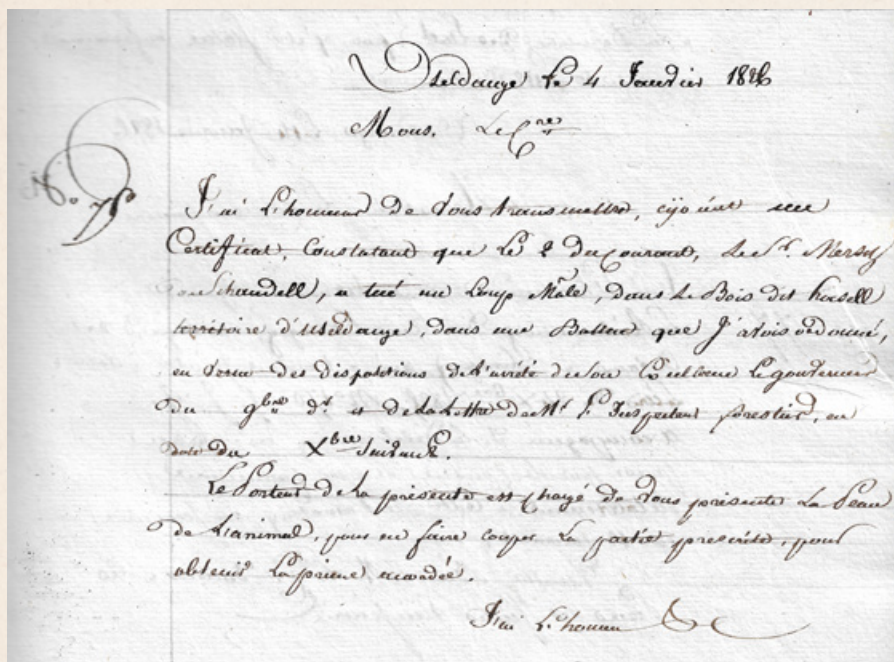 Useldange Le 4 Janvier 1826
Mons. Le Cre
No.
J'ai L'honneur de vous transmettre, cijoint une
Certificat, Constatant que Le 2 du Courant, Le Sr. Mersch
de Schandell, a tué un Loup Mâle, dans Le Bois dit hasell
territoire d'Useldange, dans une Battue que J'avois ordonné,
en vertu des dispositions de L'arrêté de Son Excellence Le gouverneur
du 9bre dr et de La Lettre de Mr L'Inspecteur forestier, en
date du Xbre Suivant.
Le Porteur de La présente est chargé de vous présenter La Peau
de L'animal, pour en faire couper La partie prescrite, pour
obtenir La prime accordée.
J'ai L'honneur